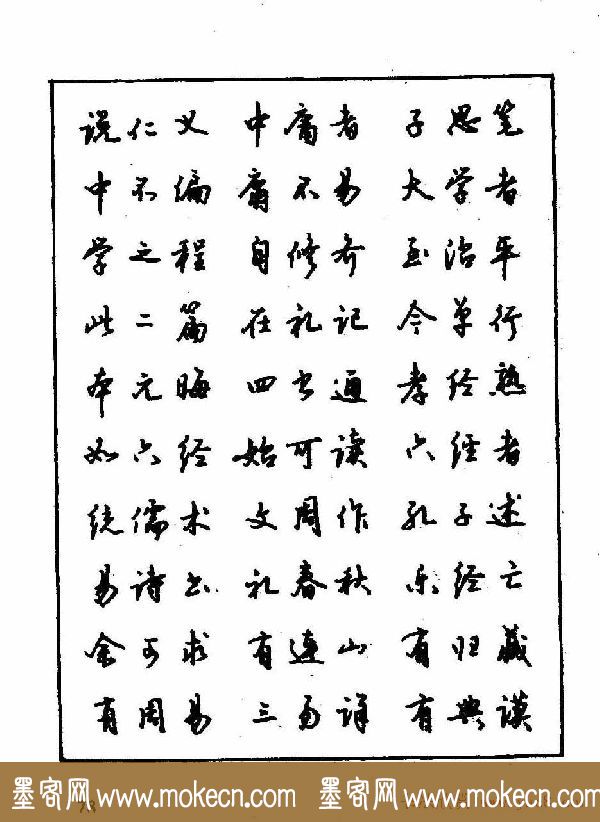 说仁义 中庸者 子思笔
中不偏 庸不易 大学者
学之程 自修齐 至治平
此二篇 在礼记 今单行
本元晦 四书通 孝经熟
如六经 始可读 六經者
统儒术 文周作 孔子述
易诗书 礼春秋 乐经亡
余可求 有连山 有归藏
有周易 三易详 有典谟
墨客网 www.mokecn.com 墨客网 www.mokecn.com